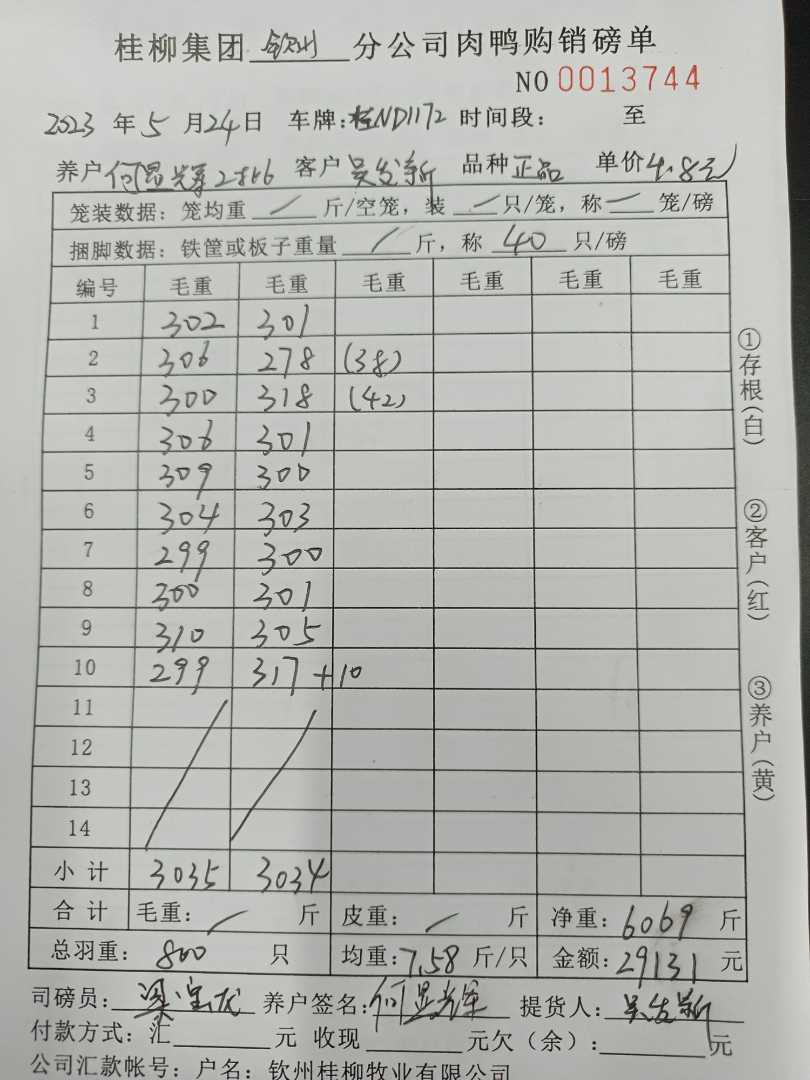 桂柳集团 钦州 分公司肉鸭购销磅单
NO 0013744
2023 年 5 月 24 日 车牌:桂ND1172 时间段: 至
养户 何显辉 客户 吴发新 品种 正品 单价 4.8元
笼装数据:笼均重 / 斤/空笼,装 / 只/笼,称 / 笼/磅
捆脚数据:铁筐或板子重量 / 斤,称 40 只/磅
编号 毛重 毛重 毛重 毛重 毛重 毛重
1 302 301
2 306 278 (38)
3 300 318 (42)
4 306 301
5 309 300
6 304 303
7 299 300
8 300 301
9 310 305
10 299 317+10
11
12
13
14
小计 3035 3034
合计 毛重: / 斤 皮重: / 斤 净重: 6069 斤
总羽重: 800 只 均重: 7.58 斤/只 金额: 29131 元
司磅员: 梁宝龙 养户签名: 何显辉 提货人: 吴发新
付款方式:汇 元 收现 元欠(余): 元
公司汇款帐号:户名:钦州桂柳牧业有限公司
①存根(白)
②客户(红)
③养户(黄)